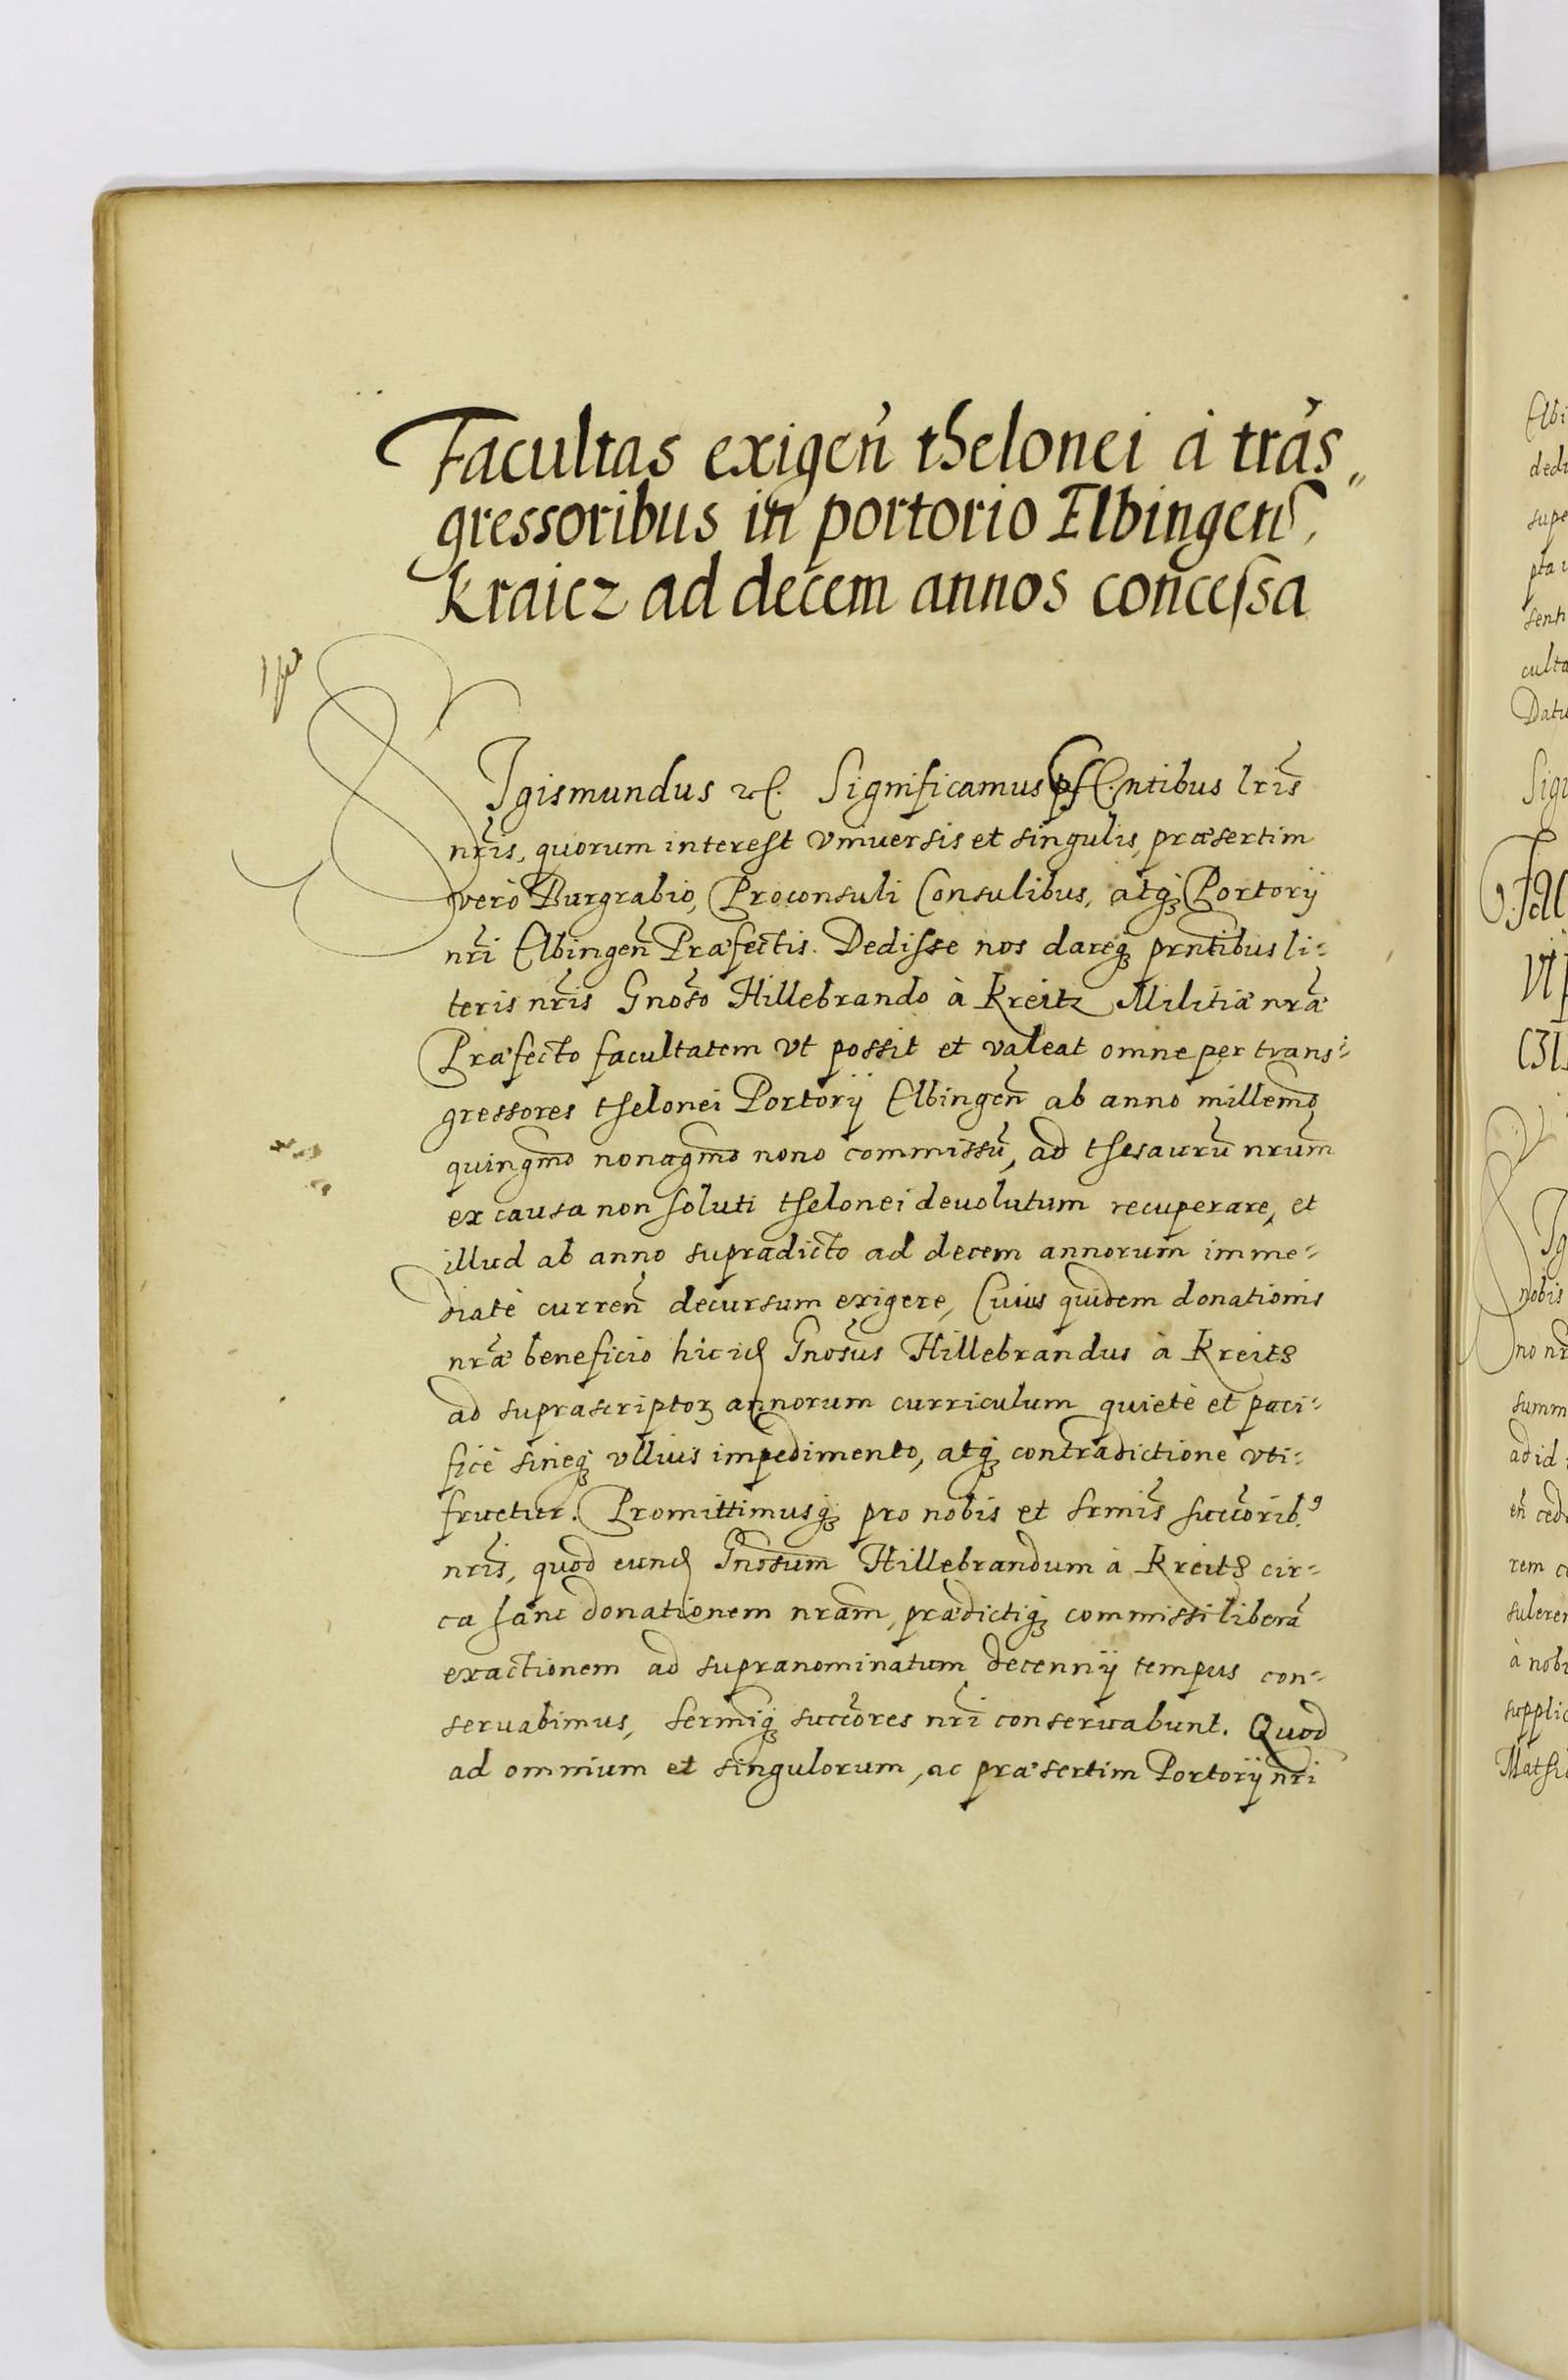 Facultas exigen̄ thelonei à trãs„
gressoribus in portorio Elbingen̄,
Kraicz ad decem annos concessa
SIgismundus etc. Significamus ntibus lr̃is
nr̃is, quorum interest vniuersis et singulis, præsertim
verò Burgrabio, Proconsuli Consulibus, atq₃ Portorij
nr̃i Elbingen̄ Præfectis. Dedisse nos dareq₃ prn̄tibus li-
teris nr̃is Gnõso Hillebrando à Kreitz Militiæ nr̃æ
Præfecto facultatem vt possit et valeat omne per trans-
gressores thelonei Portorij Elbingen̄ ab anno millem̃o
quingm̃o nonagm̃o nono commissũ, ad thesaurũ nrũm
ex causa non soluti thelonei deuolutum recuperare, et
illud ab anno supradicto ad decem annorum imme-
diatè curren̄ decursum exigere, Cuius quidem donationis
nr̃æ beneficio hic id Gnosũs Hillebrandus à Kreits
ad suprascriptoꝝ annorum curriculum quietè et paci-
ficè sineq₃ vllius impedimento, atq₃ contradictione vti-
fruetur. Promittimusq₃ pro nobis et srmĩs succõrib.⁹
nr̃is, quod eund Gnosũm Hillebrandum à Kreits cir-
ca hanc donationem nrãm, prædictiq₃ commissi liberã
exactionem ad supranominatum decennij tempus con-
seruabimus, sermĩq₃ succõres nr̃i conseruabunt. Quod
ad omnium et singulorum, ac præsertim Portorij nr̃i
Elbi
dedi
supe
pta
senti
culta
Datu
Sig
Fac
vi
Ig
nobis
no nr
summ
ad id
en̄ ced
rem c
sulere
à nob
supplic
Mathi